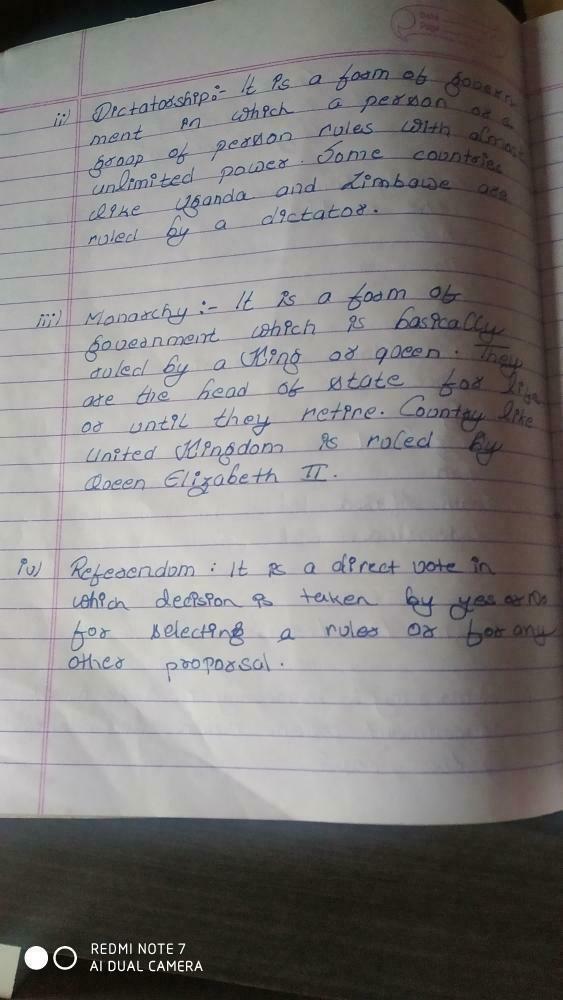 Date
Page
ii) Dictatorship:- It is a form of govern
ment in which a person or a
groop of person rules with almost
unlimited power. Some countries
like Uganda and Zimbawe are
ruled by a dictator.
iii) Monarchy :- It is a form of
government which is basically
ruled by a King or queen. They
are the head of state for life
or until they retire. Country like
United Kingdom is ruled by
Queen Elizabeth II.
iv) Referendom : It is a direct vote in
which decision is taken by yes or No
for selecting a ruler or for any
other proporsal.
REDMI NOTE 7
AI DUAL CAMERA